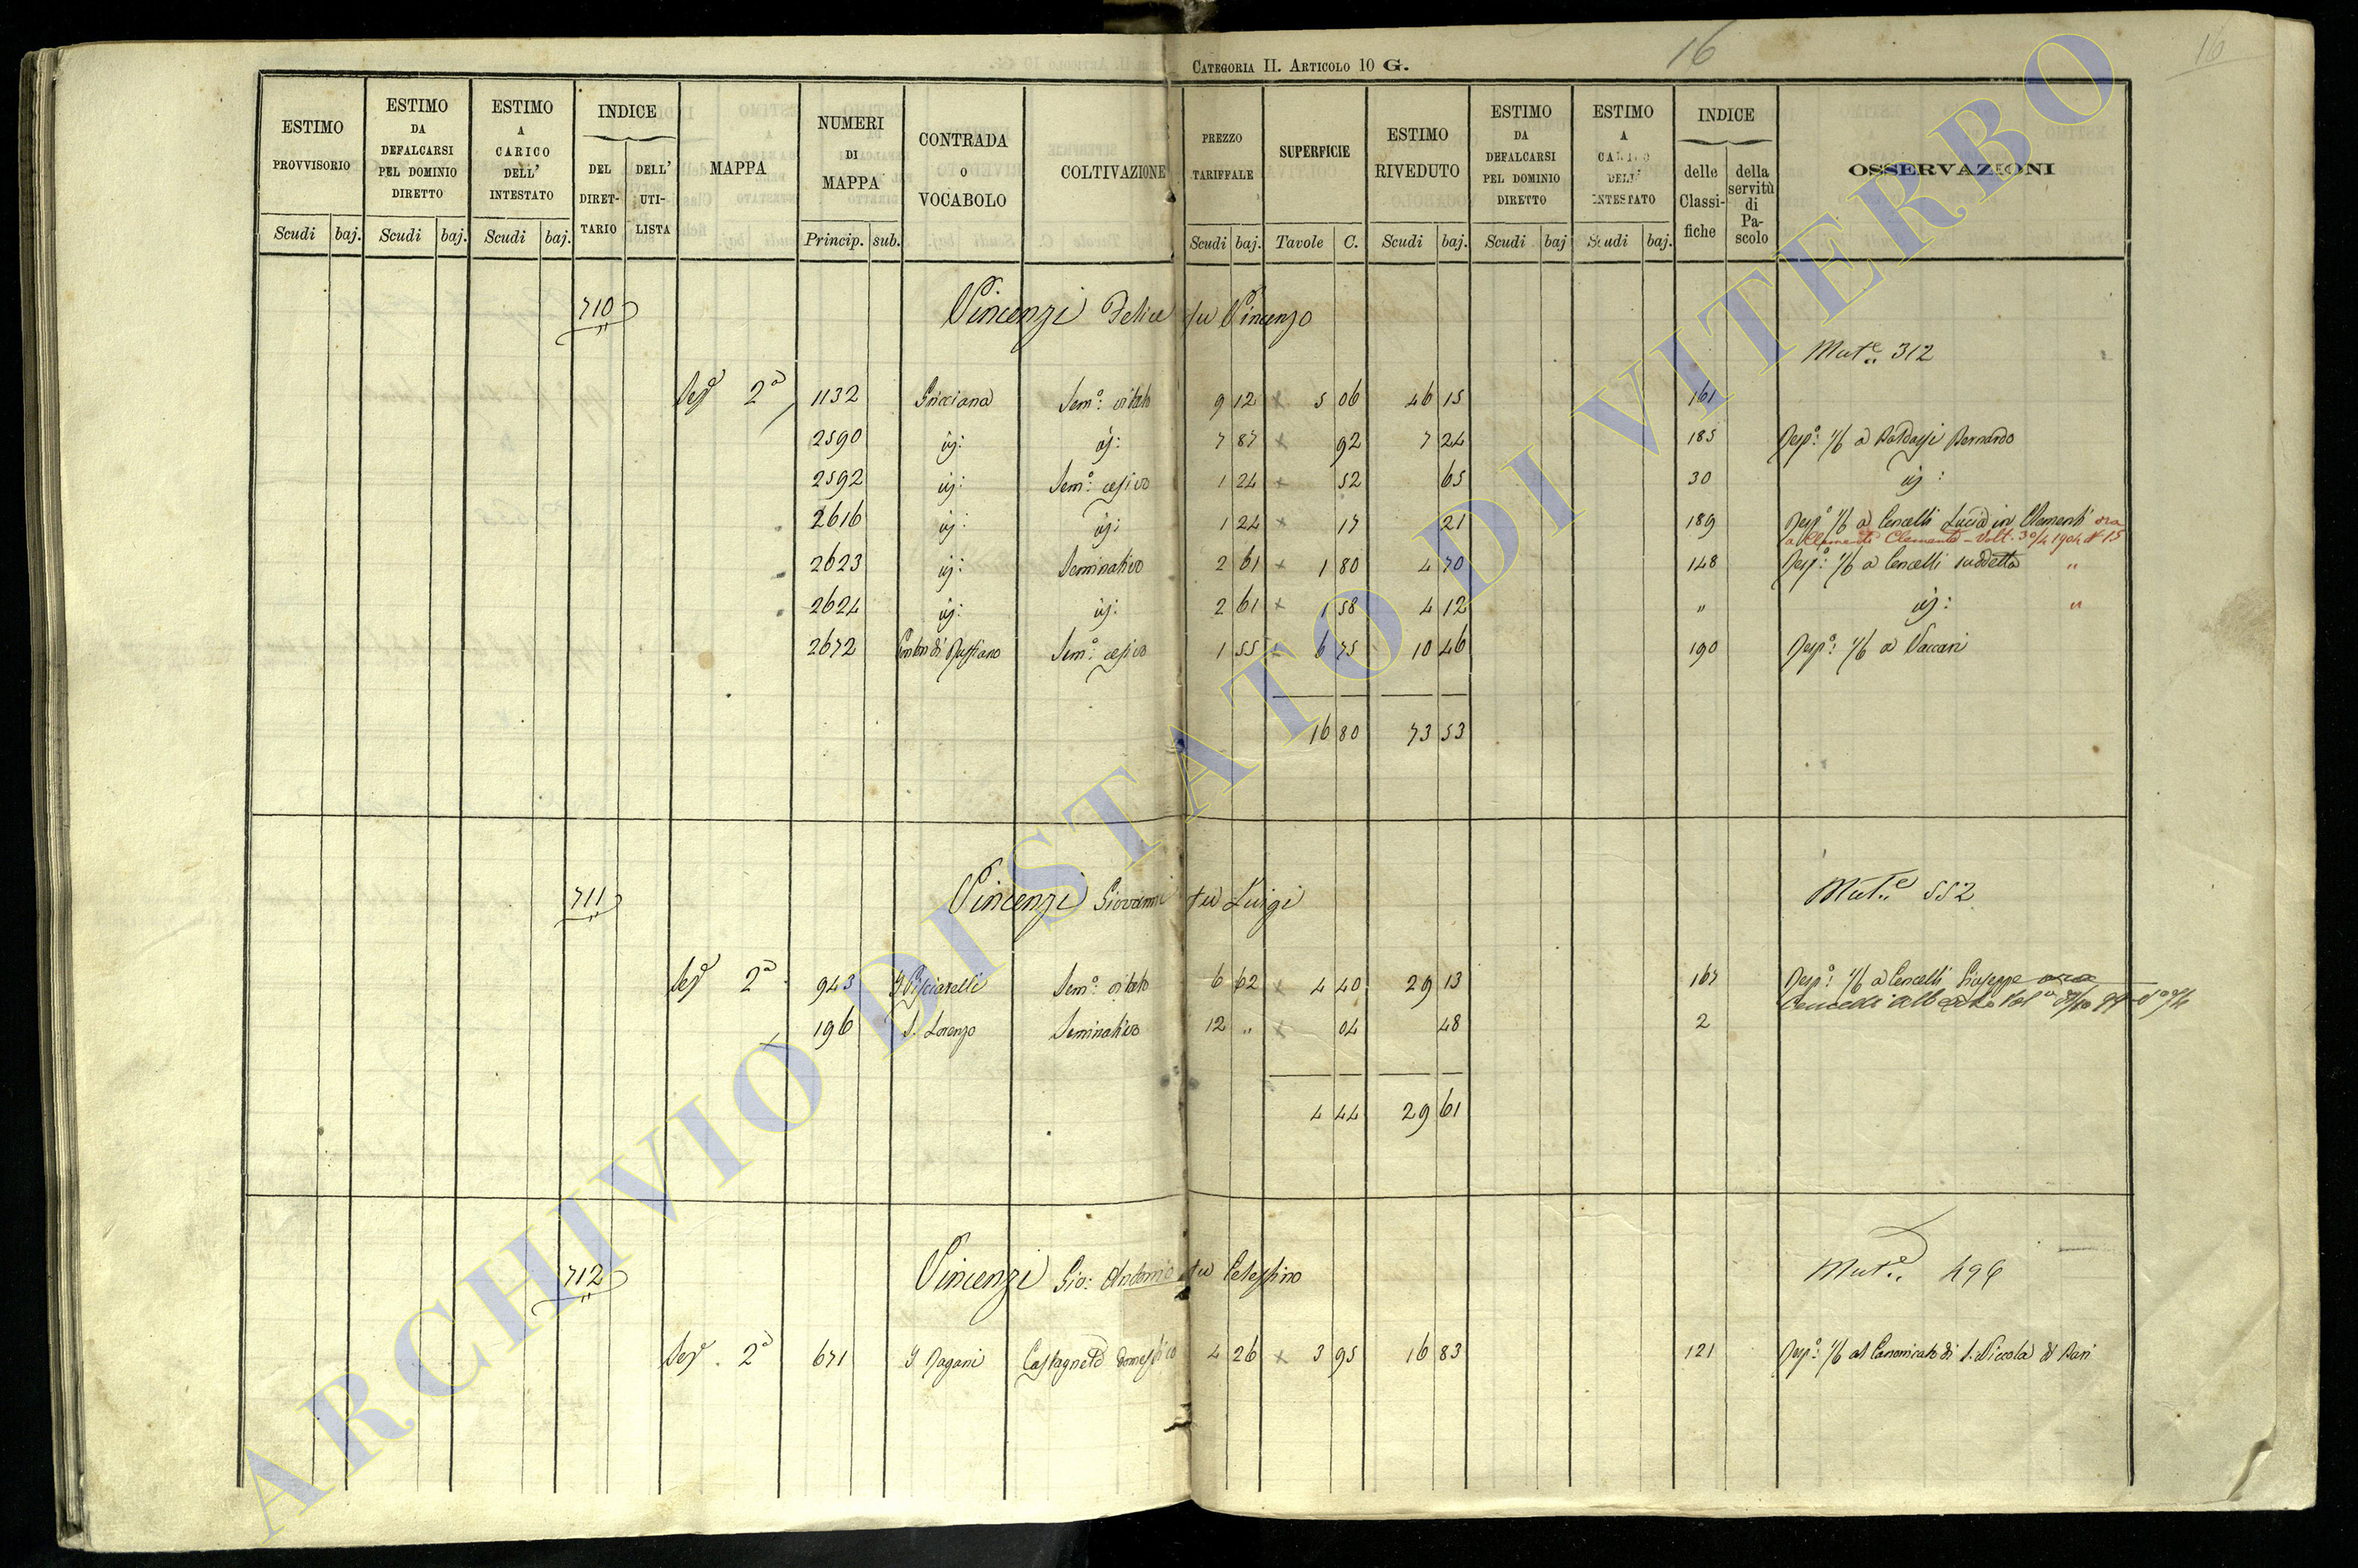 CATEGORIA II. ARTICOLO 10 G. 16 16
ESTIMO PROVVISORIO Scudi baj.
ESTIMO DA DEFALCARSI PEL DOMINIO DIRETTO Scudi baj.
ESTIMO A CARICO DELL' INTESTATO Scudi baj.
INDICE DEL DIRETTARIO DELL' UTILISTA
MAPPA
NUMERI DI MAPPA Princip. sub.
CONTRADA O VOCABOLO
COLTIVAZIONE
PREZZO TARIFFALE Scudi baj.
SUPERFICIE Tavole C.
ESTIMO RIVEDUTO Scudi baj.
ESTIMO DA DEFALCARSI PEL DOMINIO DIRETTO Scudi baj
ESTIMO A CARICO DELL' INTESTATO Scudi baj.
INDICE delle Classifiche della servitù di Pascolo
OSSERVAZIONI
710 Vincenzi Felice fu Vincenzo
Mut.e 312
Sez.e 2a 1132 Gricciana Sem.o vitato 9 12 x 5 06 46 15 161
2590 id: id: 7 87 x 92 7 24 185 Resp.o 1/6 a Bernardo
2592 id: Sem.o cesivo 1 24 x 52 65 30 id:
2616 id: id: 1 24 x 17 21 189 Resp.o 1/6 a Cencelli Lucia in Clementi ora
a Clementi Clemente - Volt. 30/4 1904 N 15
2623 id: Seminativo 2 61 x 1 80 4 70 148 Resp.o 1/6 a Cencelli suddetta "
2624 id: id: 2 61 x 1 58 4 12 " id: "
2672 Sem.o cesivo 1 55 x 6 75 10 46 190 Resp.o 1/6 a Vaccari
16 80 73 53
711 Vincenzi Giovanni fu Luigi
Mut.e 552
Sez.e 2a 943 Sem.o vitato 6 62 x 4 40 29 13 167 Resp.o 1/6 a Cencelli Giuseppe ora
Cencelli
196 S. Lorenzo Seminativo 12 " x 04 48 2
4 44 29 61
712 Vincenzi Gio: Antonio fu Celestino
Mut.e 496
Sez.e 2a 671 I Pagani Castagneto domestico 4 26 x 3 95 16 83 121 Resp.o 1/6 al Canonicato di S. Niccola di Bari
ARCHIVIO DI STATO DI VITERBO